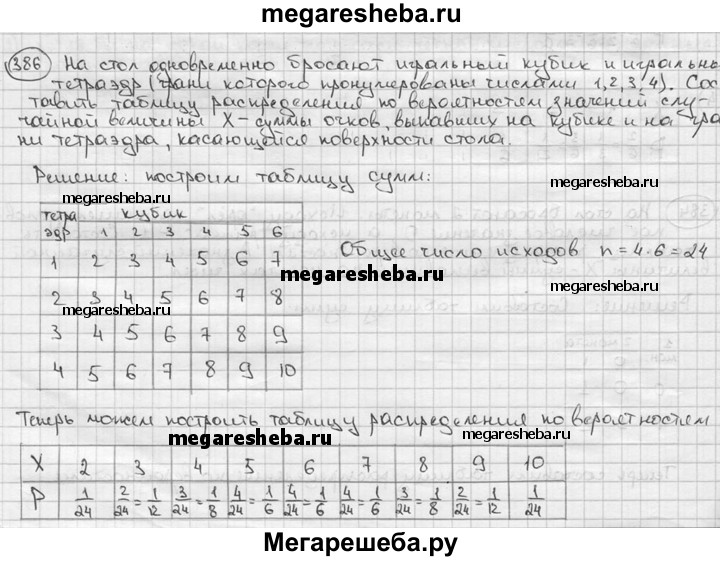 megaresheba.ru
386 На стол одновременно бросают игральный кубик и игральны
тетраэдр (грани которого пронумерованы числами 1,2,3,4). Сос
тавить таблицу распределения по вероятностем значений слу-
чайной величины X - суммы очков, выпавших на кубике и на гра
ни тетраэдра, касающейся поверхности стола.
Решение: построим таблицу сумм:
megaresheba.ru megaresheba.ru
тетра кубик
эдр 1 2 3 4 5 6
1 2 3 4 5 6 7
Общее число исходов n = 4·6 = 24
megaresheba.ru
2 3 4 5 6 7 8
megaresheba.ru
3 4 5 6 7 8 9
4 5 6 7 8 9 10
Теперь можем построить таблицу распределения по вероятностем
megaresheba.ru megaresheba.ru
X 2 3 4 5 6 7 8 9 10
P 1/24 2/24=1/12 3/24=1/8 4/24=1/6 4/24=1/6 4/24=1/6 3/24=1/8 2/24=1/12 1/24
Мегарешеба.ру